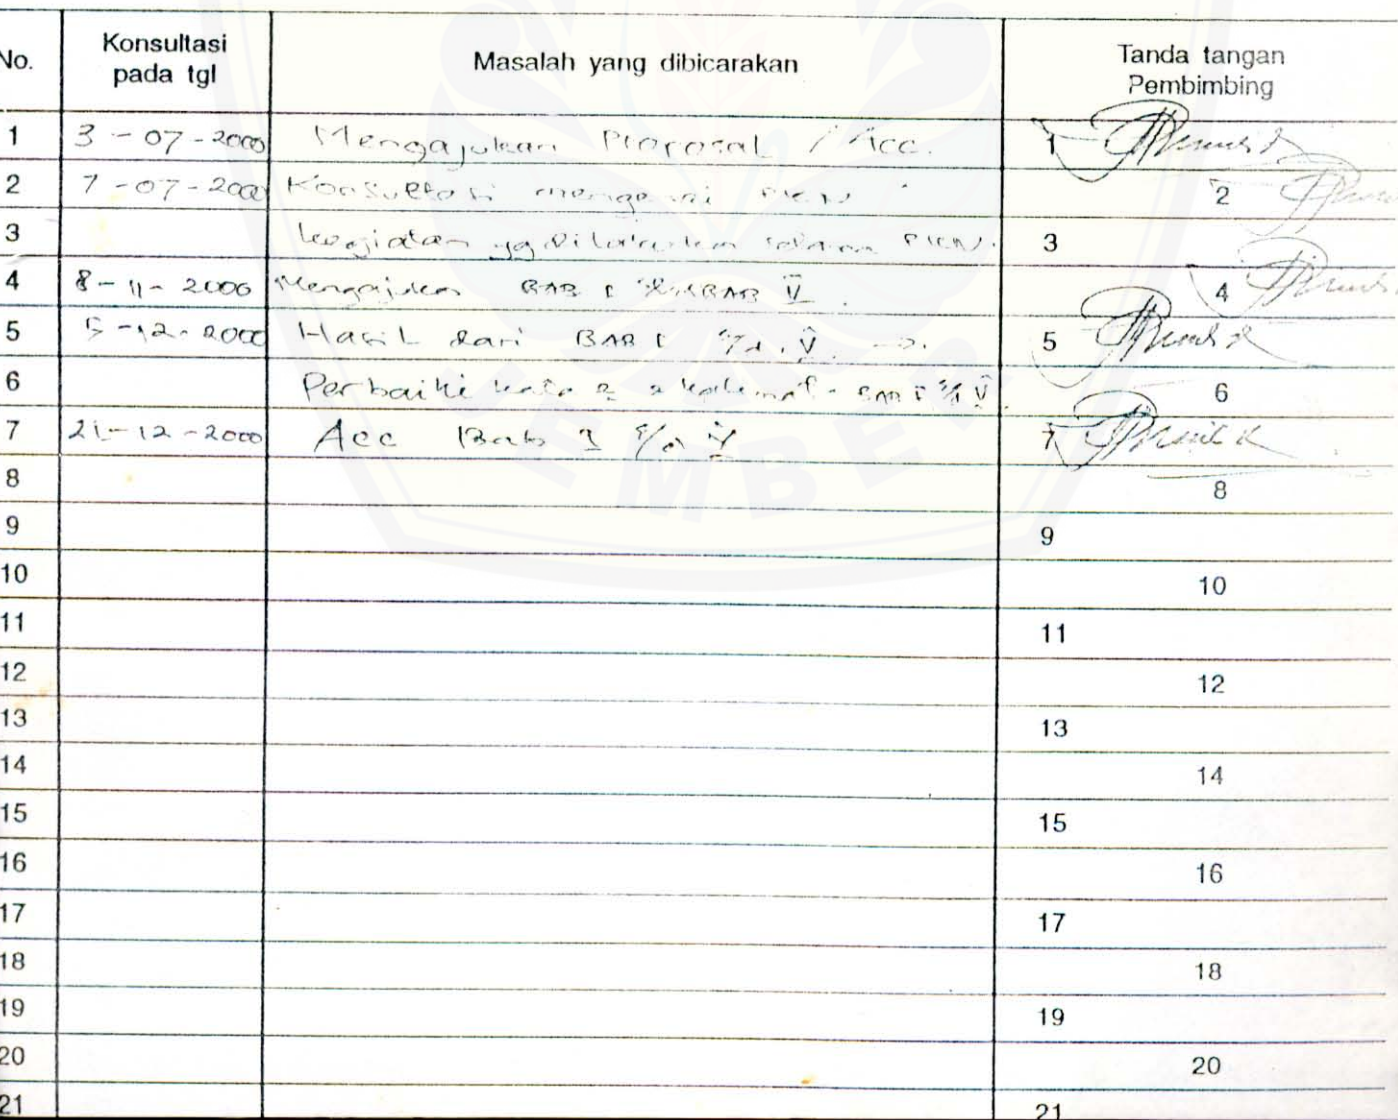 No. Konsultasi pada tgl Masalah yang dibicarakan Tanda tangan Pembimbing
1 3-07-2000 Mengajukan Proposal / Acc. 1
2 7-07-2000 Konsultasi mengenai PKN 2
3 kegiatan yg dilakukan selama PKN. 3
4 8-11-2000 Mengajukan BAB I BAB V. 4
5 5-12-2000 Hasil dari BAB I s/d V 5
6 Perbaiki kata 2 kalimat - BAB I s/d V 6
7 21-12-2000 Acc Bab I s/d V 7
8 8
9 9
10 10
11 11
12 12
13 13
14 14
15 15
16 16
17 17
18 18
19 19
20 20
21 21
EMBER